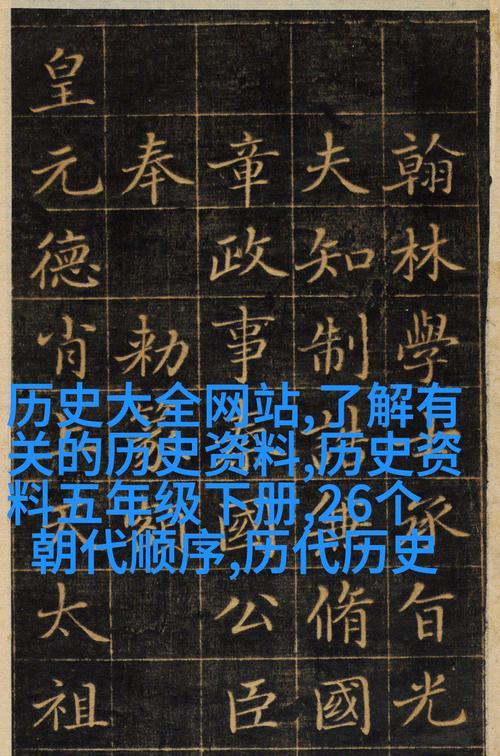 历史大全网站,了解有
关的历史资料,历史资
料五年级下册,26个
朝代顺序,历代历史
翰林學士承旨光
夫知制誥兼脩國
章政事國公臣
奉勑
皇元德肖太祖